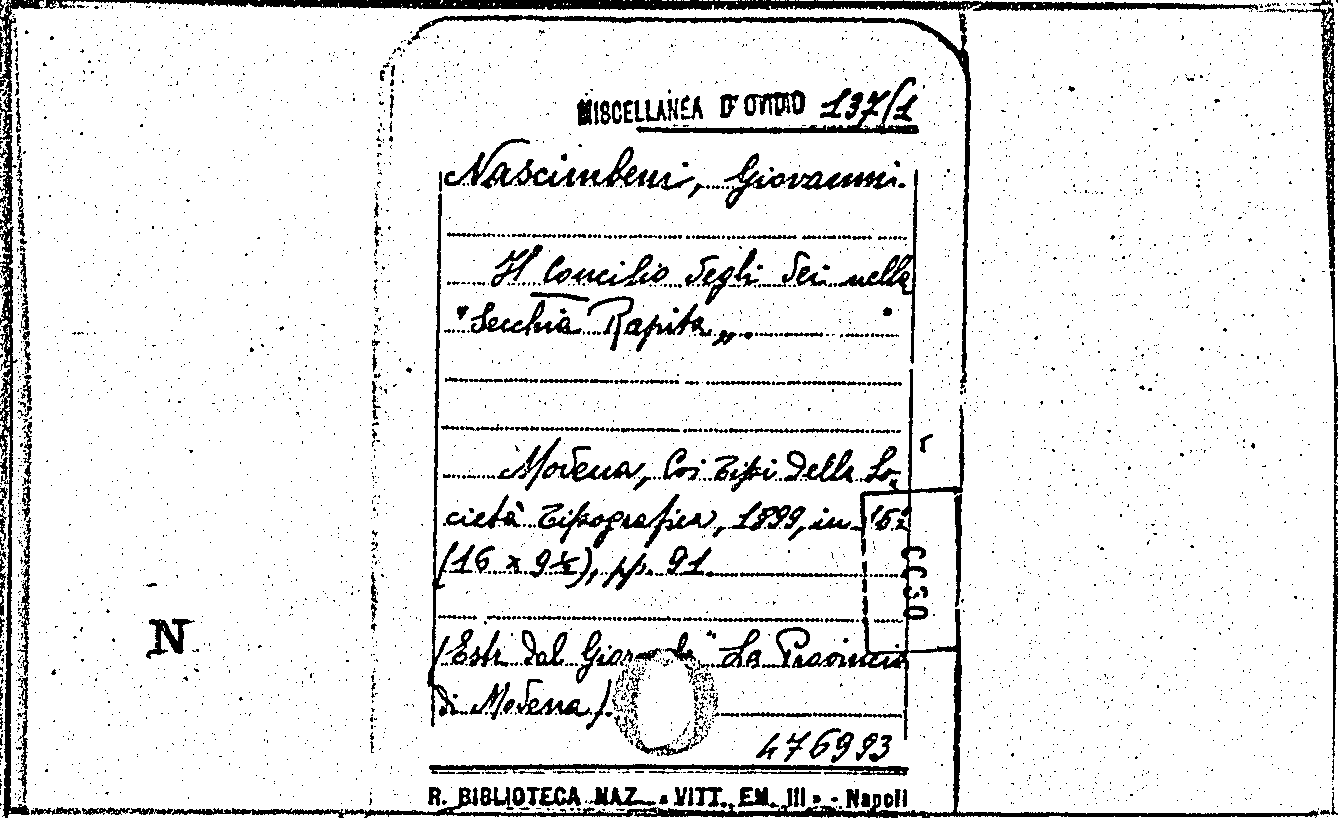 MISCELLANEA D'OVIDIO 137/1
Nascimbeni, Giovanni.
Il Concilio degli Dei nella
"Secchia Rapita„.
Modena, Coi Tipi della So-
cietà Tipografica, 1899, in 16º
(16 x 9½), pp. 91.
(Estr. dal Giornale "La Provincia
di Modena).
476993
CCSD
N
R. BIBLIOTECA NAZ. « VITT. EM. III » - Napoli